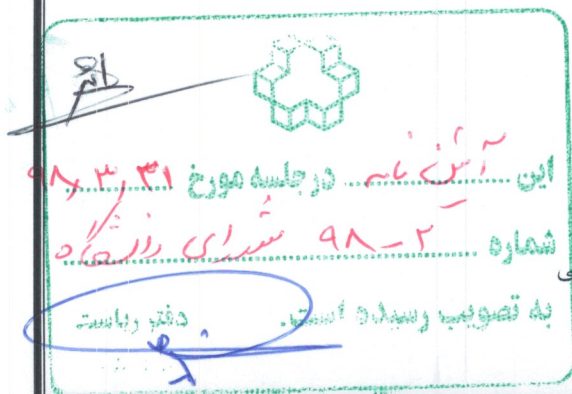 این آئین نامه در جلسه مورخ ۹۸,۳,۳۱
شماره ۹۸-۲ شورای دانشگاه
به تصویب رسیده است.
دفتر ریاست